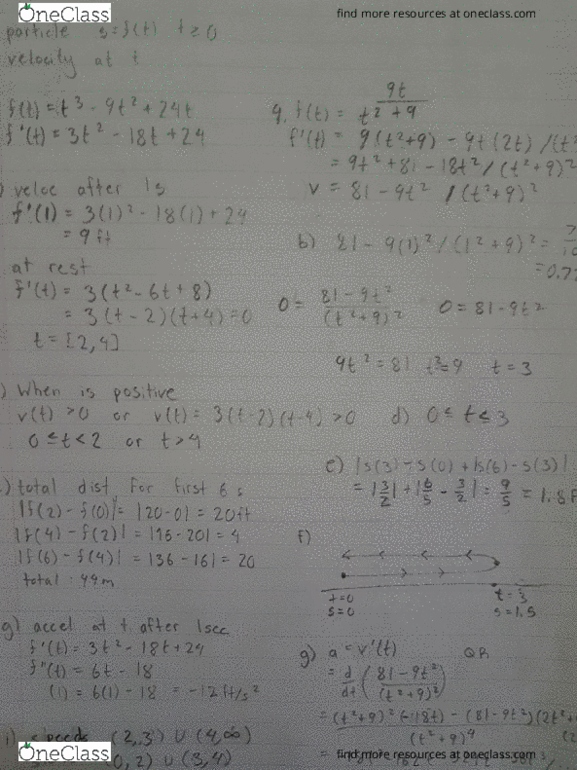 OneClass
find more resources at oneclass.com
particle s=f(t) t≥0
velocity at t
f(t)=t³-9t²+24t
f'(t)=3t²-18t+24
) veloc after 1s
f'(1)=3(1)²-18(1)+24
=9ft
at rest
f'(t)=3(t²-6t+8)
=3(t-2)(t+4)=0
t=[2,4]
) When is positive
v(t)>0 or v(t)=3(t-2)(t-4)>0
0≤t<2 or t>4
) total dist for first 6s
|f(2)-f(0)|=|20-0|=20ft
|f(4)-f(2)|=|16-20|=4
|f(6)-f(4)|=|36-16|=20
total: 44m
g) accel at t after 1sec
f'(t)=3t²-18t+24
f''(t)=6t-18
(1)=6(1)-18=-12ft/s²
speeds (2,3)∪(4,∞)
(0,2)∪(3,4)
9. f(t)=9t/t²+9
f'(t)=9(t²+9)-9t(2t)/(t²
=9t²+81-18t²/(t²+9)²
v=81-9t²/(t²+9)²
b) 81-9(1)²/(1²+9)²=
=0.7
0=81-9t²/(t²+9)² 0=81-9t²
9t²=81 t²=9 t=3
d) 0≤t≤3
e) |s(3)-s(0)+|s(6)-s(3)|
=|3/2|+|6/5-3/2|=9/5=1.8F
f)
t=0 t=3
s=0 s=1.5
g) a=v'(t) QR
=d/dt(81-9t²/(t²+9)²)
=(t²+9)²(-18t)-(81-9t²)(2t²+
(t²+9)⁴
OneClass
find more resources at oneclass.com